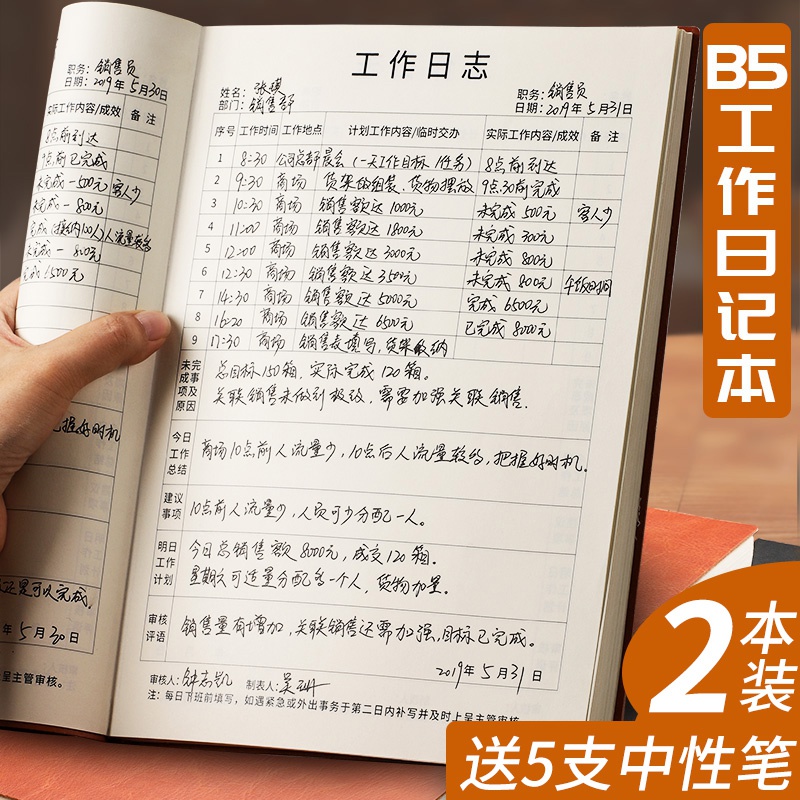 职务：销售员
日期：2019年5月30日
实际工作内容/成效 备注
8点前到达
9点前已完成
未完成-500元 客人少
未完成-800元
人流量较多
未完成-800元
完成6500元
把握好时机
还是可以完成。
年5月30日
呈主管审核。
工作日志
姓名：张瑛 职务：销售员
部门：销售部 日期：2019年5月31日
序号 工作时间 工作地点 计划工作内容/临时交办 实际工作内容/成效 备注
1 8:30 公司总部 晨会（一天工作目标/任务） 8点前到达
2 9:30 商场 货架的组装、货物摆放 9点30前完成
3 10:30 商场 销售额达1000元 未完成500元 客人少
4 11:00 商场 销售额达1800元 未完成300元
5 12:00 商场 销售额达3000元 未完成800元
6 12:30 商场 销售额达3500元 未完成800元 午饭时间
7 14:30 商场 销售额达5000元 完成6500元
8 16:20 商场 销售额达6500元 已完成8000元
9 17:30 商场 销售表填写，货架收纳
未完成事项及原因
总目标150箱，实际完成120箱。
关联销售未做到极致，需要加强关联销售.
今日工作总结
商场10点前人流量少，10点后人流量较多，把握好时机。
建议事项
10点前人流量少，人员可少分配一人。
明日工作计划
今日总销售额8000元，成交120箱。
星期六可适量分配多一个人，货物加量。
审核评语
销售量有增加，关联销售还需加强，目标已完成。
2019年5月31日
审核人：钟志凯 制表人：吴珊
注：每日下班前填写，如遇紧急或外出事务于第二日内补写并及时上呈主管审核
B5工作日记本
2本装
送5支中性笔